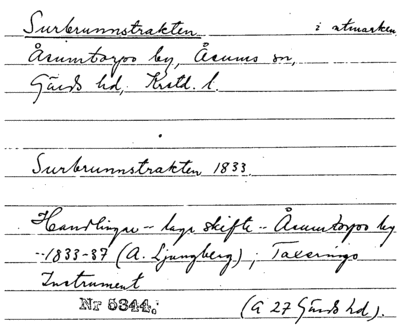 Surbrunnstrakten i utmarken
Åsumtorps by, Åsums sn,
Gärds hd, Krstd. l.
Surbrunnstrakten 1833
Handlingar – laga skifte – Åsumtorps by
-1833-37 (A. Ljungberg); Taxerings
Instrument
Nr 5344. (G 27 Gärds hd).